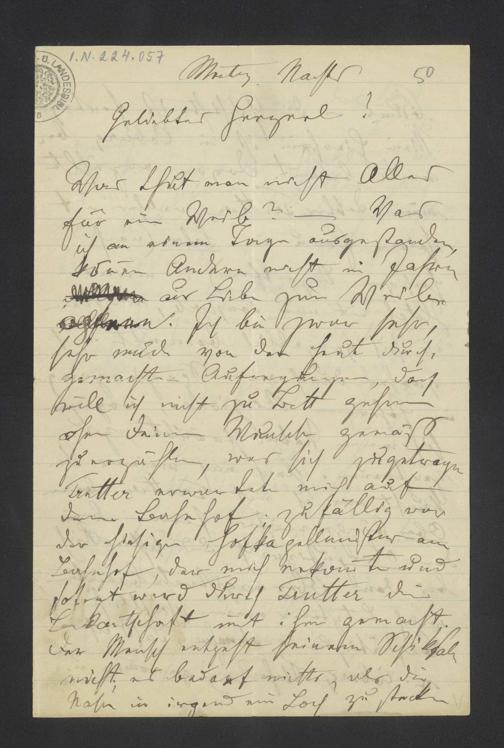 I.N. 224.057
U. LANDESBIBL
Montag Nachts 50
Geliebtes Herzerl!
Was thut man nicht Alles
für ein Weib? — Was
ich an einem Tage ausgestanden,
können Andere nicht in Jahren
aus Liebe zum Weibe
Ich bin zwar sehr,
sehr müde von den heut durch-
gemachten Aufregungen, doch
will ich nicht zu Bett gehen
ohne Deinem Wunsche gemäß
zu erzählen, was sich zugetragen
erwartete mich auf
dem Bahnhof, zufällig war
der hiesige Hofkapellmeister am
Bahnhof, der mich erkannte und
sofort wird durch die
mit ihm gemacht.
Der Mensch entgeht seinem Schiksale
nicht, es bedarf nichts, als die
Nase in irgend ein Loch zu stecken